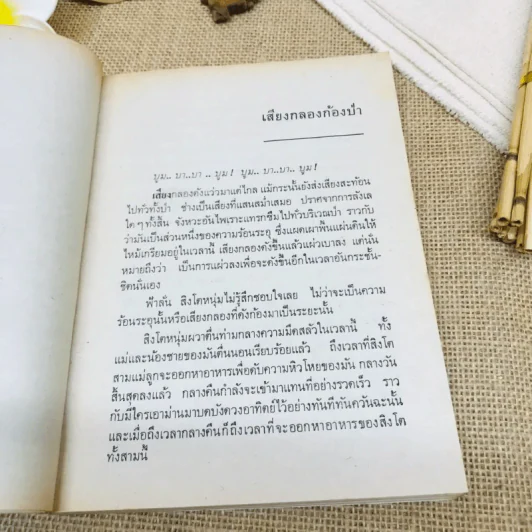 เสียงกลองก้องป่า
บูม.. บา..บา .. บูม! บูม.. บา..บา.. บูม!
เสียงกลองดังแว่วมาแต่ไกล แม้กระนั้นยังส่งเสียงสะท้อน
ไปทั่วทั้งป่า ช่างเป็นเสียงที่แสนสม่ำเสมอ ปราศจากการลังเล
ใด ๆ ทั้งสิ้น จังหวะอันไพเราะแทรกซึมไปทั่วบริเวณป่า ราวกับ
ว่ามันเป็นส่วนหนึ่งของความร้อนระอุ ซึ่งแผดเผาพื้นแผ่นดินให้
ไหม้เกรียมอยู่ในเวลานี้ เสียงกลองดังขึ้นแล้วแผ่วเบาลง แต่นั่น
หมายถึงว่า เป็นการแผ่วลงเพื่อจะดังขึ้นอีกในเวลาอันกระชั้น-
ชิดนั่นเอง
ฟ้าลั่น สิงโตหนุ่มไม่รู้สึกชอบใจเลย ไม่ว่าจะเป็นความ
ร้อนระอุนั้นหรือเสียงกลองที่ดังก้องมาเป็นระยะนั้น
สิงโตหนุ่มผวาตื่นท่ามกลางความมืดสลัวในเวลานี้ ทั้ง
แม่และน้องชายของมันตื่นนอนเรียบร้อยแล้ว ถึงเวลาที่สิงโต
สามแม่ลูกจะออกหาอาหารเพื่อดับความหิวโหยของมัน กลางวัน
สิ้นสุดลงแล้ว กลางคืนกำลังจะเข้ามาแทนที่อย่างรวดเร็ว ราว
กับมีใครเอาม่านมาบดบังดวงอาทิตย์ไว้อย่างทันทีทันควันฉะนั้น
และเมื่อถึงเวลากลางคืนก็ถึงเวลาที่จะออกหาอาหารของสิงโต
ทั้งสามนี้